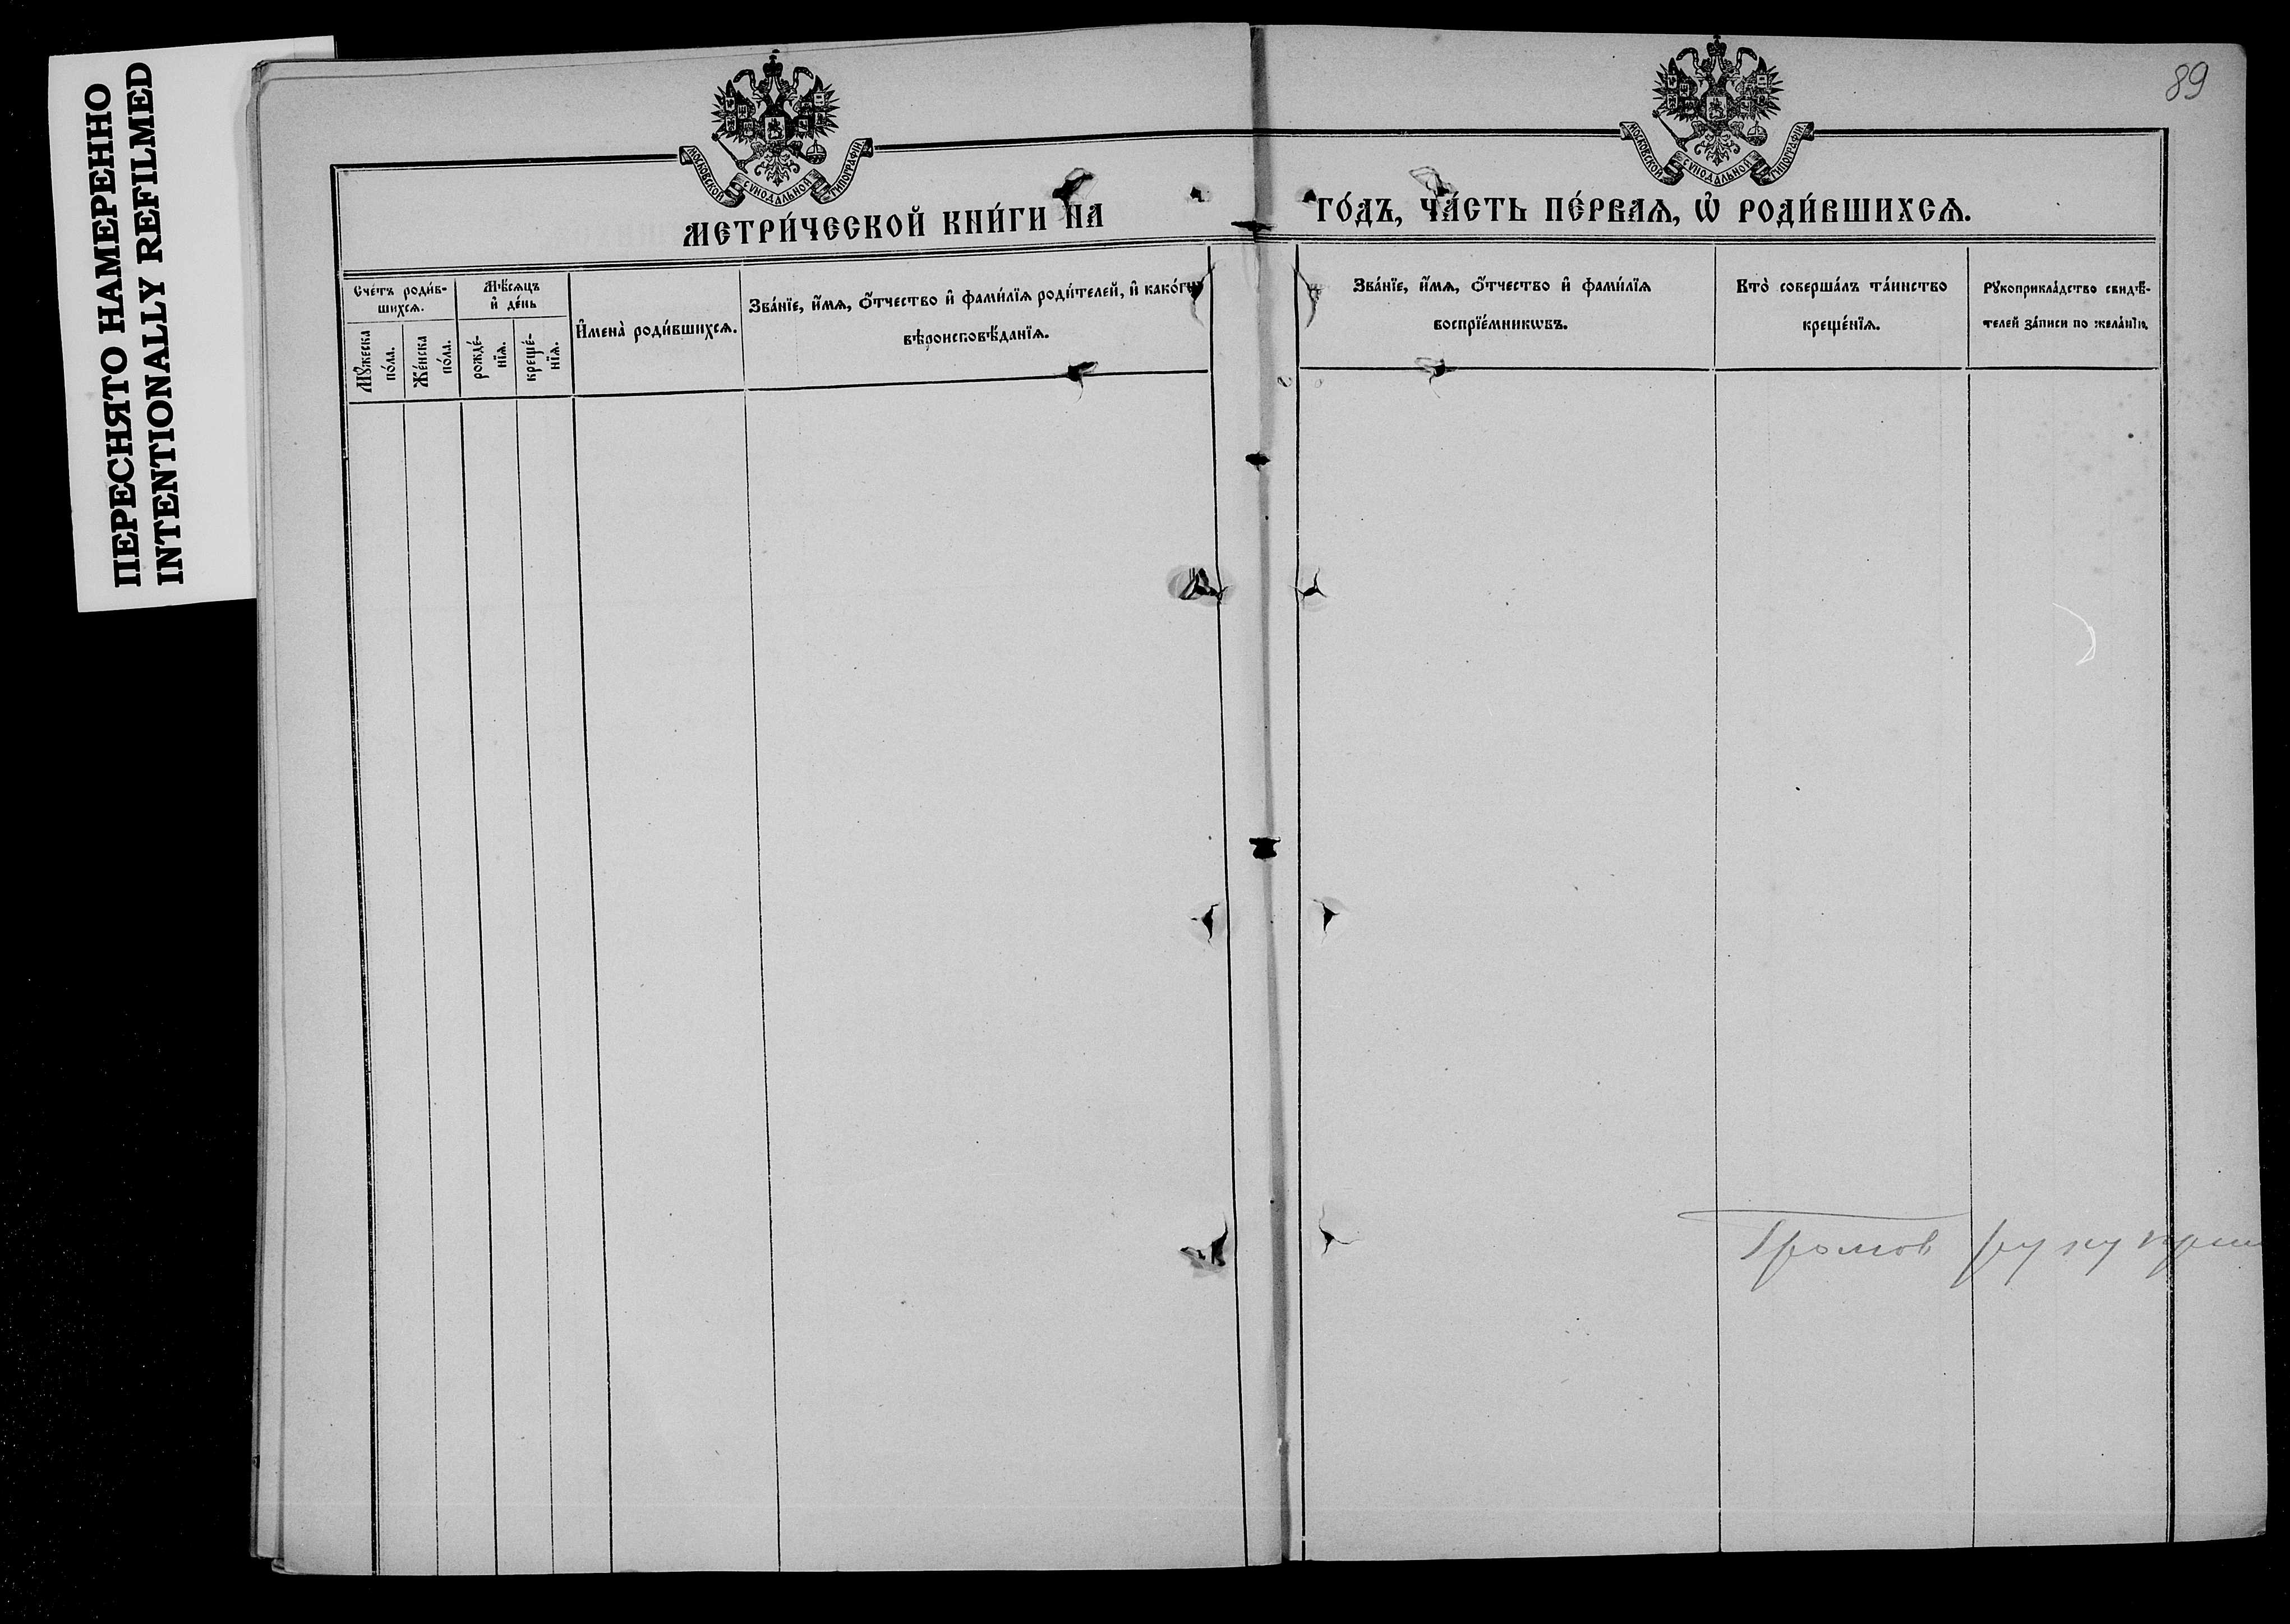 ПЕРЕСНЯТО НАМЕРЕННО
INTENTIONALLY REFILMED
89
МОСКОВСКОЙ СѴНОДАЛЬНОЙ ТИПОГРАФІИ
МОСКОВСКОЙ СѴНОДАЛЬНОЙ ТИПОГРАФІИ
МЕТРИ́ЧЕСКОЙ КНИ́ГИ НА
ГО́ДЪ, ЧА́СТЬ ПЕ́РВАѦ, Ѽ РОДИ́ВШИХСѦ.
Сче́тъ роди́в-
шихсѧ.
Мꙋ́жеска
по́ла.
Же́нска
по́ла.
Мѣ́сѧцъ
и҆ де́нь
рожде́-
нїѧ.
креще́-
нїѧ.
И҆мена̀ роди́вшихсѧ.
Зва́нїе, и҆́мѧ, ѻ҆́тчество и҆ фами́лїѧ роди́телей, и҆ како́гѡ
вѣроисповѣ́данїѧ.
Зва́нїе, и҆́мѧ, ѻ҆́тчество и҆ фами́лїѧ
воспрїе́мникѡвъ.
Кто̀ соверша́лъ та́инство
креще́нїѧ.
Рꙋкоприкла́дство свидѣ́-
телей за́писи по жела́нїю.
Громов руку при